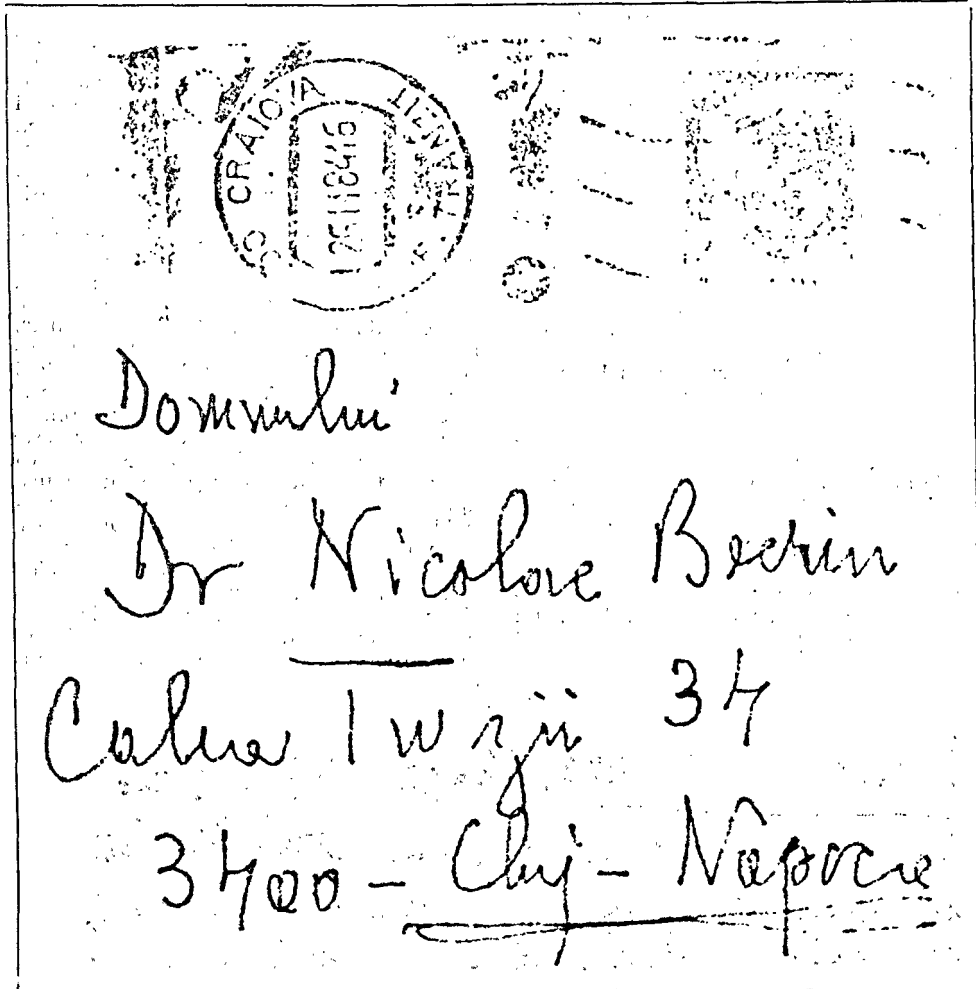 CRAIOVA
Domnului
Dr Nicolae Becrin
Calea Turzii 34
3400 - Cluj - Napoca